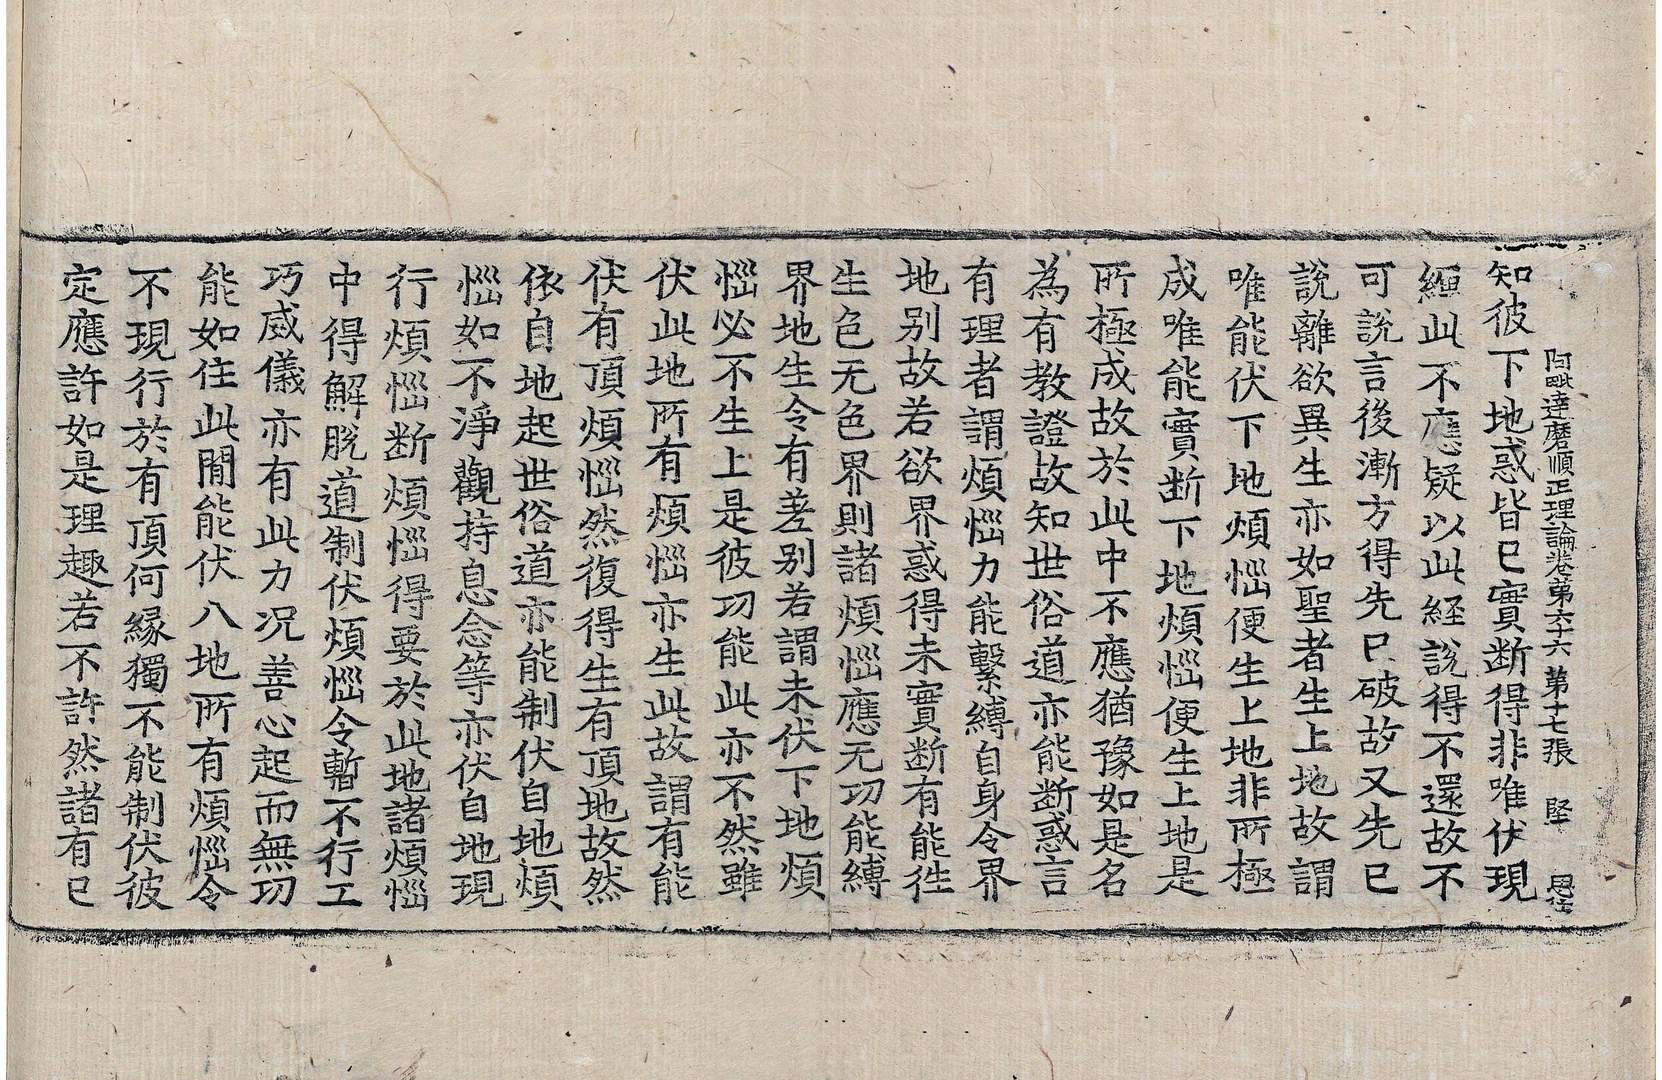 阿毗達磨順正理論卷第六十六 第十七張 堅 恩
知彼下地惑皆已實断得非唯伏現
纏此不應疑以此經說得不還故不
可說言後漸方得先已破故又先已
說離欲異生亦如聖者生上地故謂
唯能伏下地煩惱便生上地非所極
成唯能實断下地煩惱便生上地是
所極成故於此中不應猶豫如是名
為有教證故知世俗道亦能断惑言
有理者謂煩惱力能繫縛自身令界
地别故若欲界惑得未實断有能徃
生色无色界則諸煩惱應无功能縛
界地生令有差别若謂未伏下地煩
惱必不生上是彼功能此亦不然雖
伏此地所有煩惱亦生此故謂有能
伏有頂煩惱然復得生有頂地故然
依自地起世俗道亦能制伏自地煩
惱如不淨觀持息念等亦伏自地現
行煩惱断煩惱得要於此地諸煩惱
中得解脫道制伏煩惱令暫不行工
巧威儀亦有此力况善心起而無功
能如住此間能伏八地所有煩惱令
不現行於有頂何緣獨不能制伏彼
定應許如是理趣若不許然諸有已